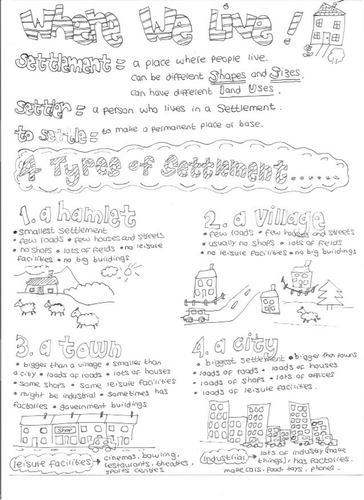 Where We Live!
Settlement = a place where people live.
can be different Shapes and Sizes.
can have different Land Uses.
Settler = a person who lives in a Settlement.
to settle = to make a permanent place or base.
4 Types of Settlement......
1. a hamlet
• smallest settlement
• few roads • few houses and streets
• no shops • lots of fields • no leisure
facilities • no big buildings
2. a village
• few roads • few houses and streets
• usually no shops • lots of fields
• no leisure facilities • no big buildings
3. a town
• bigger than a village • smaller than
a city • loads of roads • lots of houses
• some shops • some leisure facilities
• might be industrial • sometimes has
factories • government buildings
SHOP
leisure facilities → cinemas, bowling,
restaurants, theatres
sports centres
4. a city
• biggest settlement • bigger than towns
• loads of roads • loads of houses
• loads of shops • lots of offices
• loads of leisure facilities.
Industrial → lots of industry (make
things), has factories.
make cars, food, toys, phones.